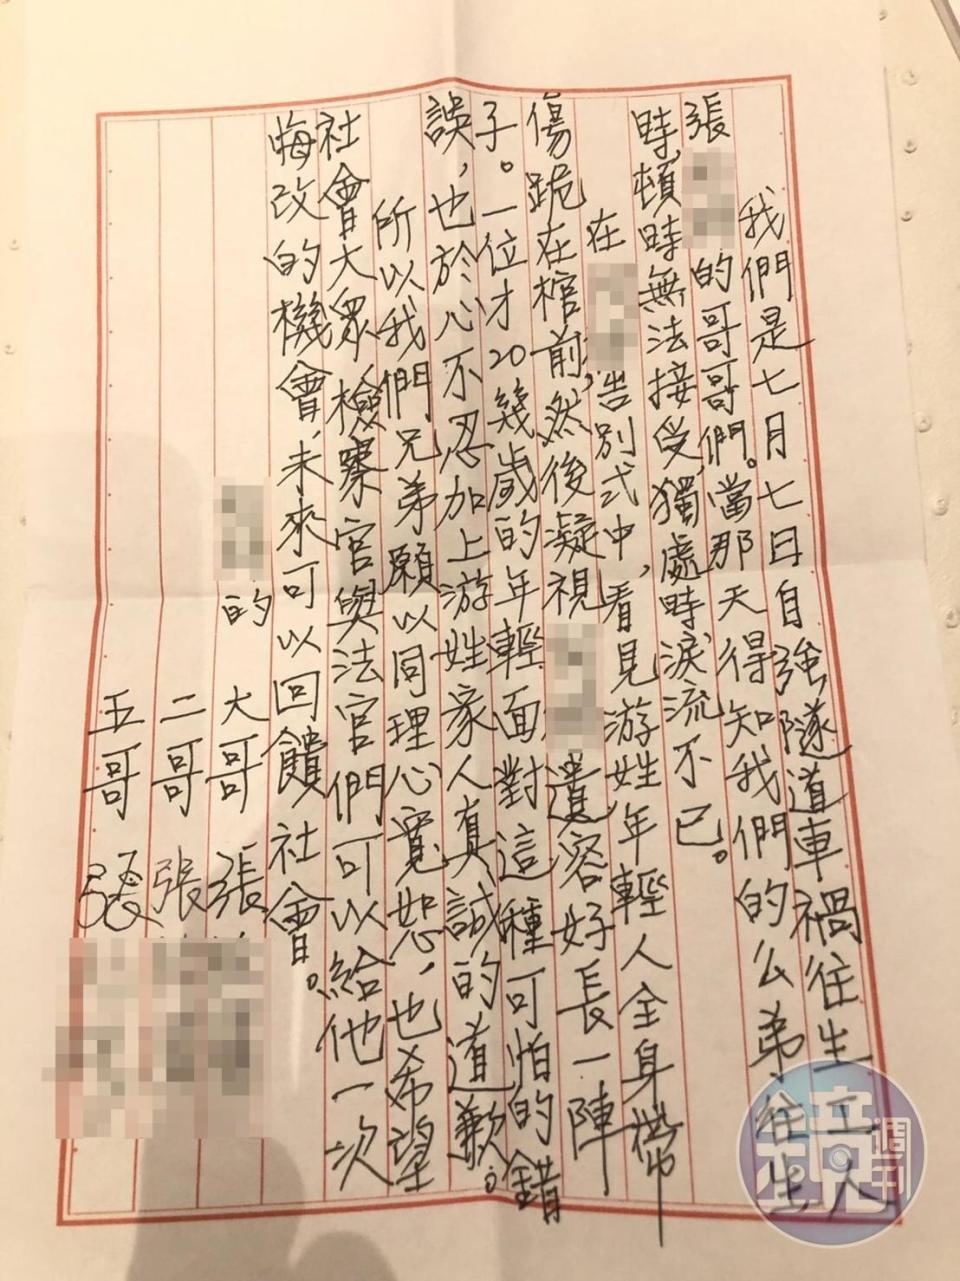 我們是七月七日自強隧道車禍往生工人
張的哥哥們。當那天得知我們的么弟往生
時,頓時無法接受,獨處時淚流不已。
在告別式中,看見游姓年輕人全身帶
傷跪在棺前,然後凝視遺容好長一陣
子。一位才20幾歲的年輕面對這種可怕的錯
誤,也於心不忍加上游姓家人真誠的道歉。
所以我們兄弟願以同理心寬恕,也希望
社會大眾、檢察官與法官們可以給他一次
悔改的機會,未來可以回饋社會。
的 大哥 張
二哥 張
五哥 張
鏡週刊